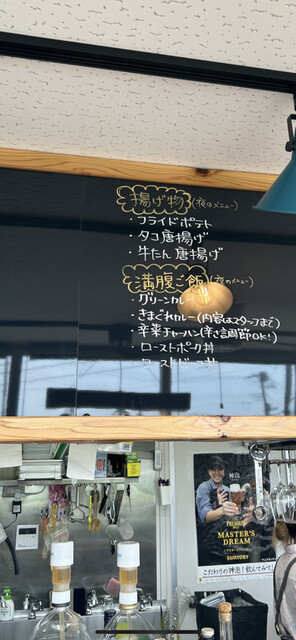 揚げ物(夜のメニュー)
・フライドポテト
・タコ唐揚げ
・牛たん唐揚げ
満腹ご飯(夜のメニュー)
・グリーンカレー
・きまぐれカレー(内容はスタッフまで)
・辛菜チャーハン(辛さ調節OK!)
・ローストポーク丼
・ローストビーフ丼
神泡
PREMIUM
MASTER'S
DREAM
SUNTORY
こだわりの神泡!飲んでみて!